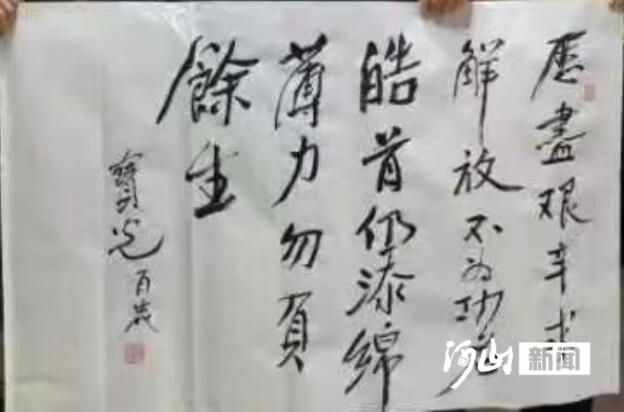 历盡艰辛求
解放不为功名
皓首仍添綿
薄力勿負
餘生
寶光 百歲
河山新闻